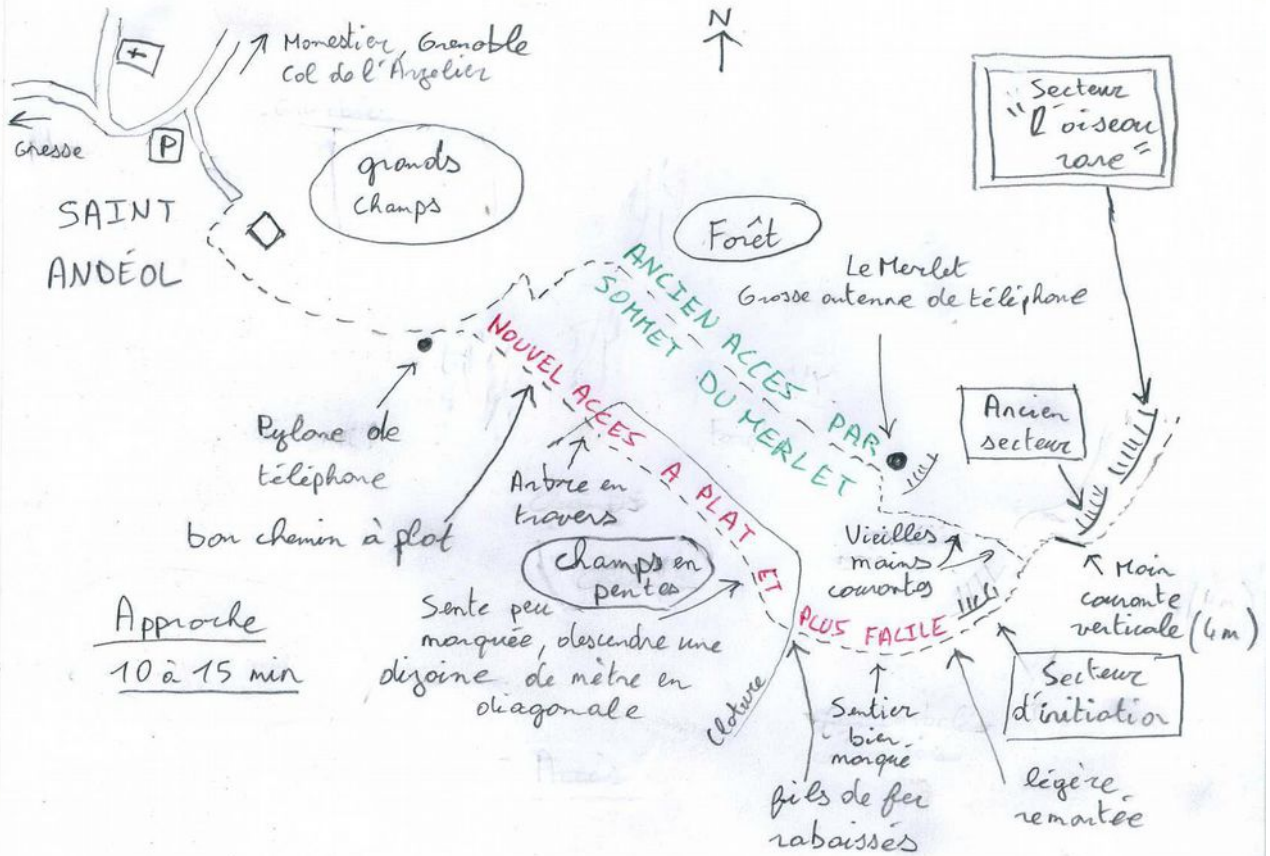 N
Monestier, Grenoble
Col de l'Arzelier
Gresse
P
SAINT
ANDÉOL
grands
champs
Secteur
"l'oiseau
rare"
Forêt
Le Merlet
Grosse antenne de téléphone
ANCIEN ACCES PAR
SOMMET DU MERLET
NOUVEL ACCES A PLAT ET PLUS FACILE
Ancien
secteur
Pylone de
téléphone
bon chemin à plat
Arbre en
travers
champs en
pentes
Vieilles
mains
courantes
Main
courante
verticale (4m)
Approche
10 à 15 min
Sente peu
marquée, descendre une
dizaine de mètre en
diagonale
Cloture
Sentier
bien
marqué
Secteur
d'initiation
fils de fer
rabaissés
légère
remontée